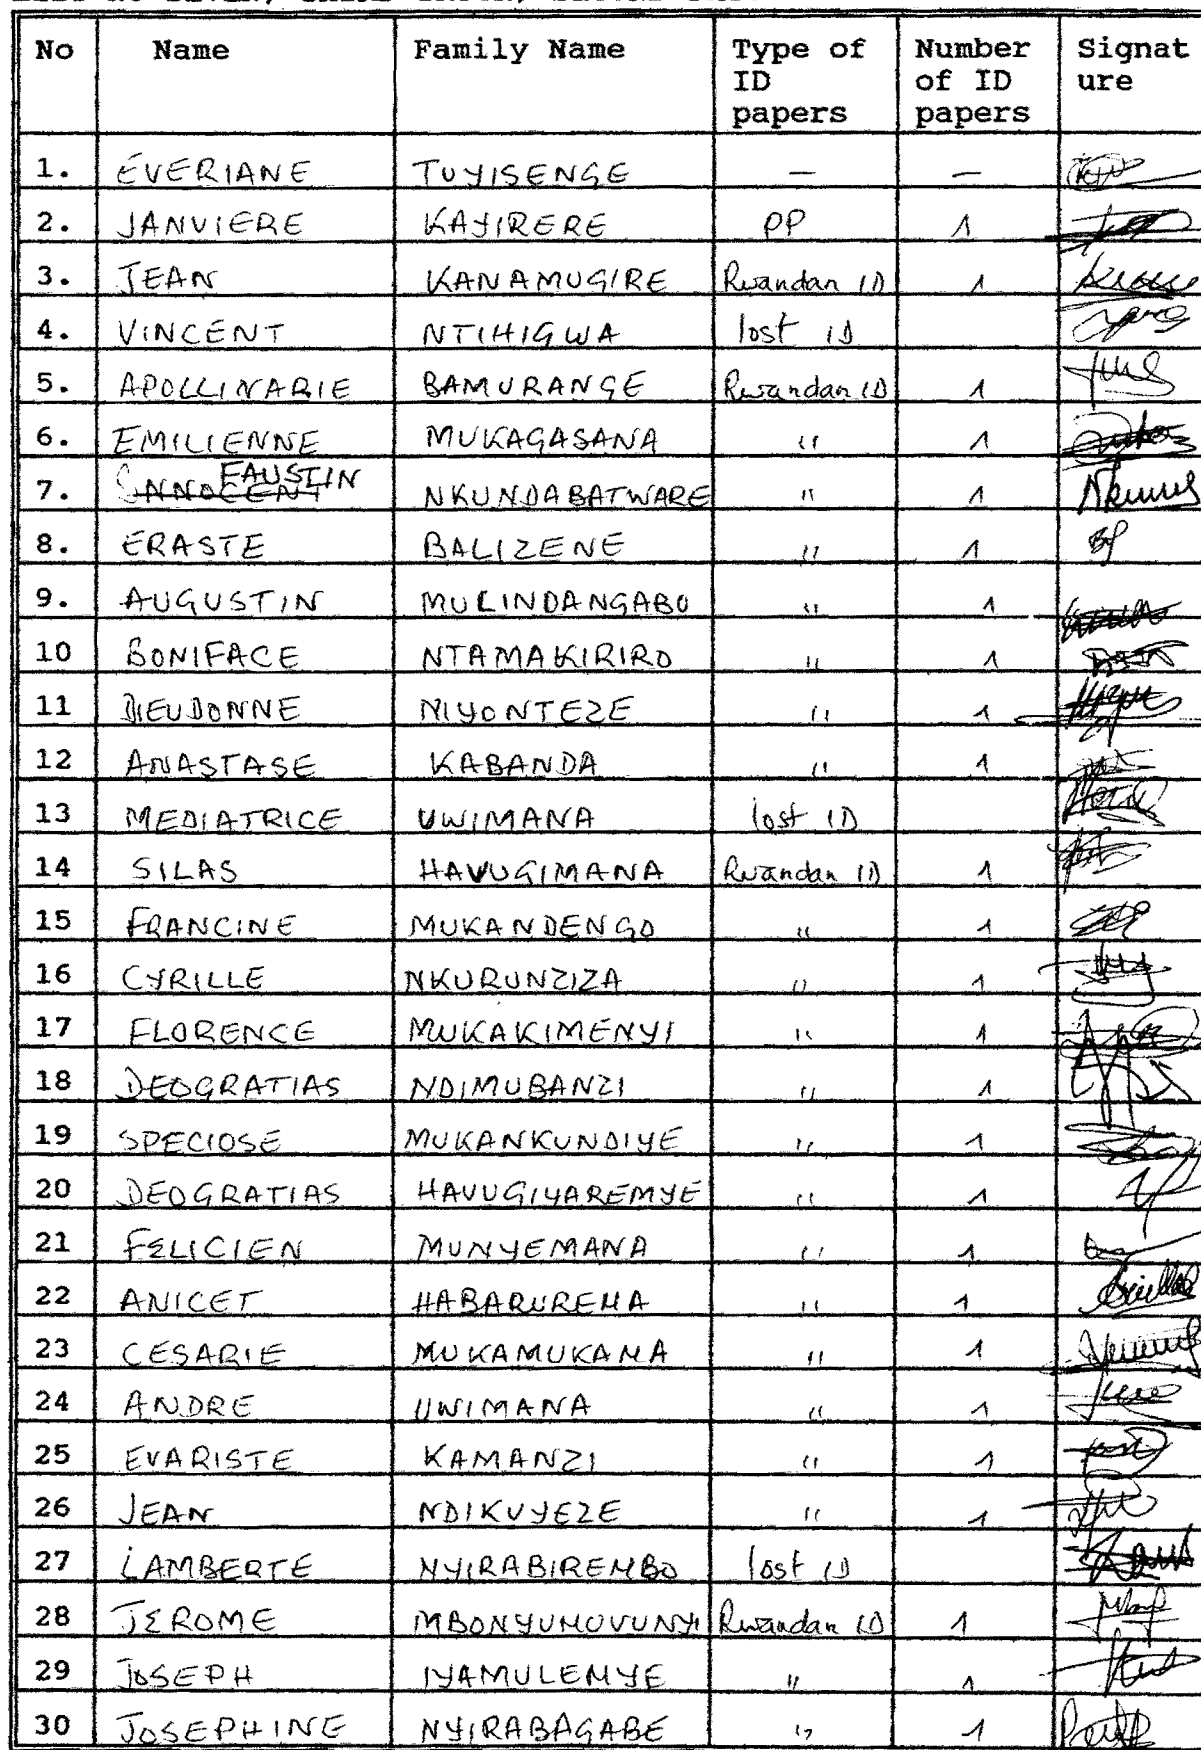 No Name Family Name Type of ID papers Number of ID papers Signat ure
1. ÉVERIANE TUYISENGE — —
2. JANVIERE KAYIRERE PP 1
3. JEAN KANAMUGIRE Rwandan ID 1
4. VINCENT NTIHIGWA lost ID
5. APOLLINARIE BAMURANGE Rwandan ID 1
6. EMILIENNE MUKAGASANA " 1
7. INNOCENT FAUSTIN NKUNDABATWARE " 1
8. ERASTE BALIZENE " 1
9. AUGUSTIN MULINDANGABO " 1
10 BONIFACE NTAMAKIRIRO " 1
11 DIEUDONNE NIYONTEZE " 1
12 ANASTASE KABANDA " 1
13 MEDIATRICE UWIMANA lost ID
14 SILAS HAVUGIMANA Rwandan ID 1
15 FRANCINE MUKANDENGO " 1
16 CYRILLE NKURUNZIZA " 1
17 FLORENCE MUKAKIMENYI " 1
18 DEOGRATIAS NDIMUBANZI " 1
19 SPECIOSE MUKANKUNDIYE " 1
20 DEOGRATIAS HAVUGIYAREMYE " 1
21 FELICIEN MUNYEMANA " 1
22 ANICET HABARUREMA " 1
23 CESARIE MUKAMUKAMA " 1
24 ANDRE UWIMANA " 1
25 EVARISTE KAMANZI " 1
26 JEAN NDIKUYEZE " 1
27 LAMBERTE NYIRABIREMBO lost ID
28 JEROME MBONYUMUVUNYI Rwandan ID 1
29 JOSEPH IYAMULEMYE " 1
30 JOSEPHINE NYIRABAGABE " 1